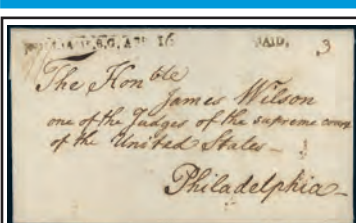 16 PAID, 3
The Honble
James Wilson
one of the Judges of the supreme court
of the United States
Philadelphia